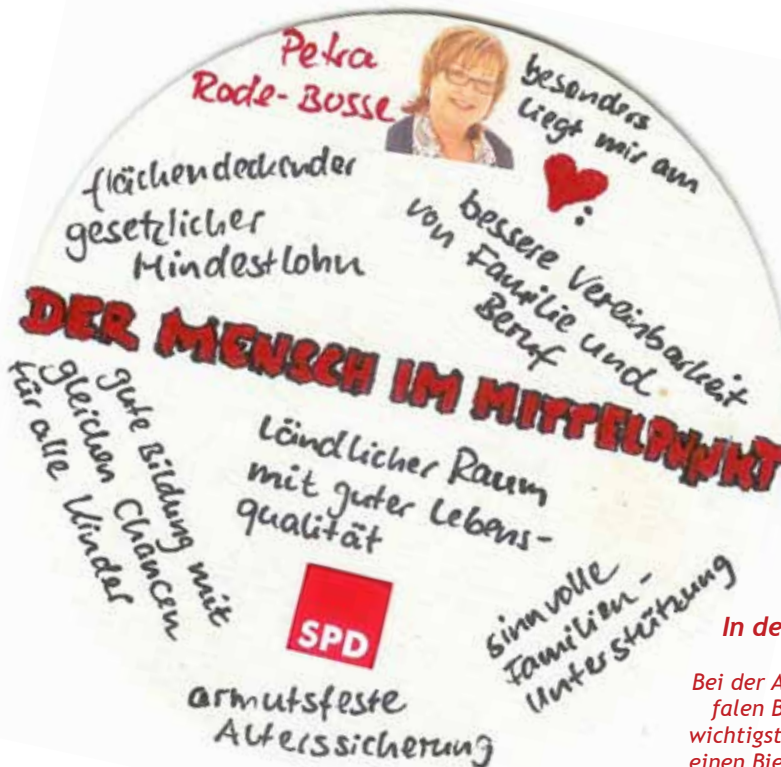 Petra
Rode-Bosse
besonders
liegt mir am
:
flächendeckender
gesetzlicher
Mindestlohn
bessere Vereinbarkeit
von Familie und
Beruf
DER MENSCH IM MITTELPUNKT
gute Bildung mit
gleichen Chancen
für alle Kinder
Ländlicher Raum
mit guter Lebens-
qualität
SPD
sinnvolle
Familien-
Unterstützung
armutsfeste
Alterssicherung
In de
Bei der A
falen B
wichtigst
einen Bie